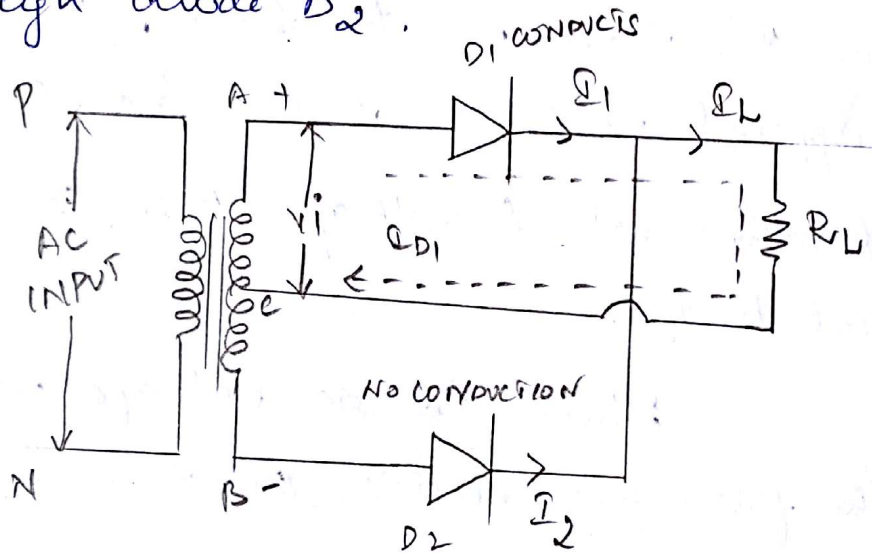 diode D2.
D1 CONDUCTS
P
A +
I1
IL
AC
INPUT
Vi
ID1
RL
C
NO CONDUCTION
N
B -
D2
I2